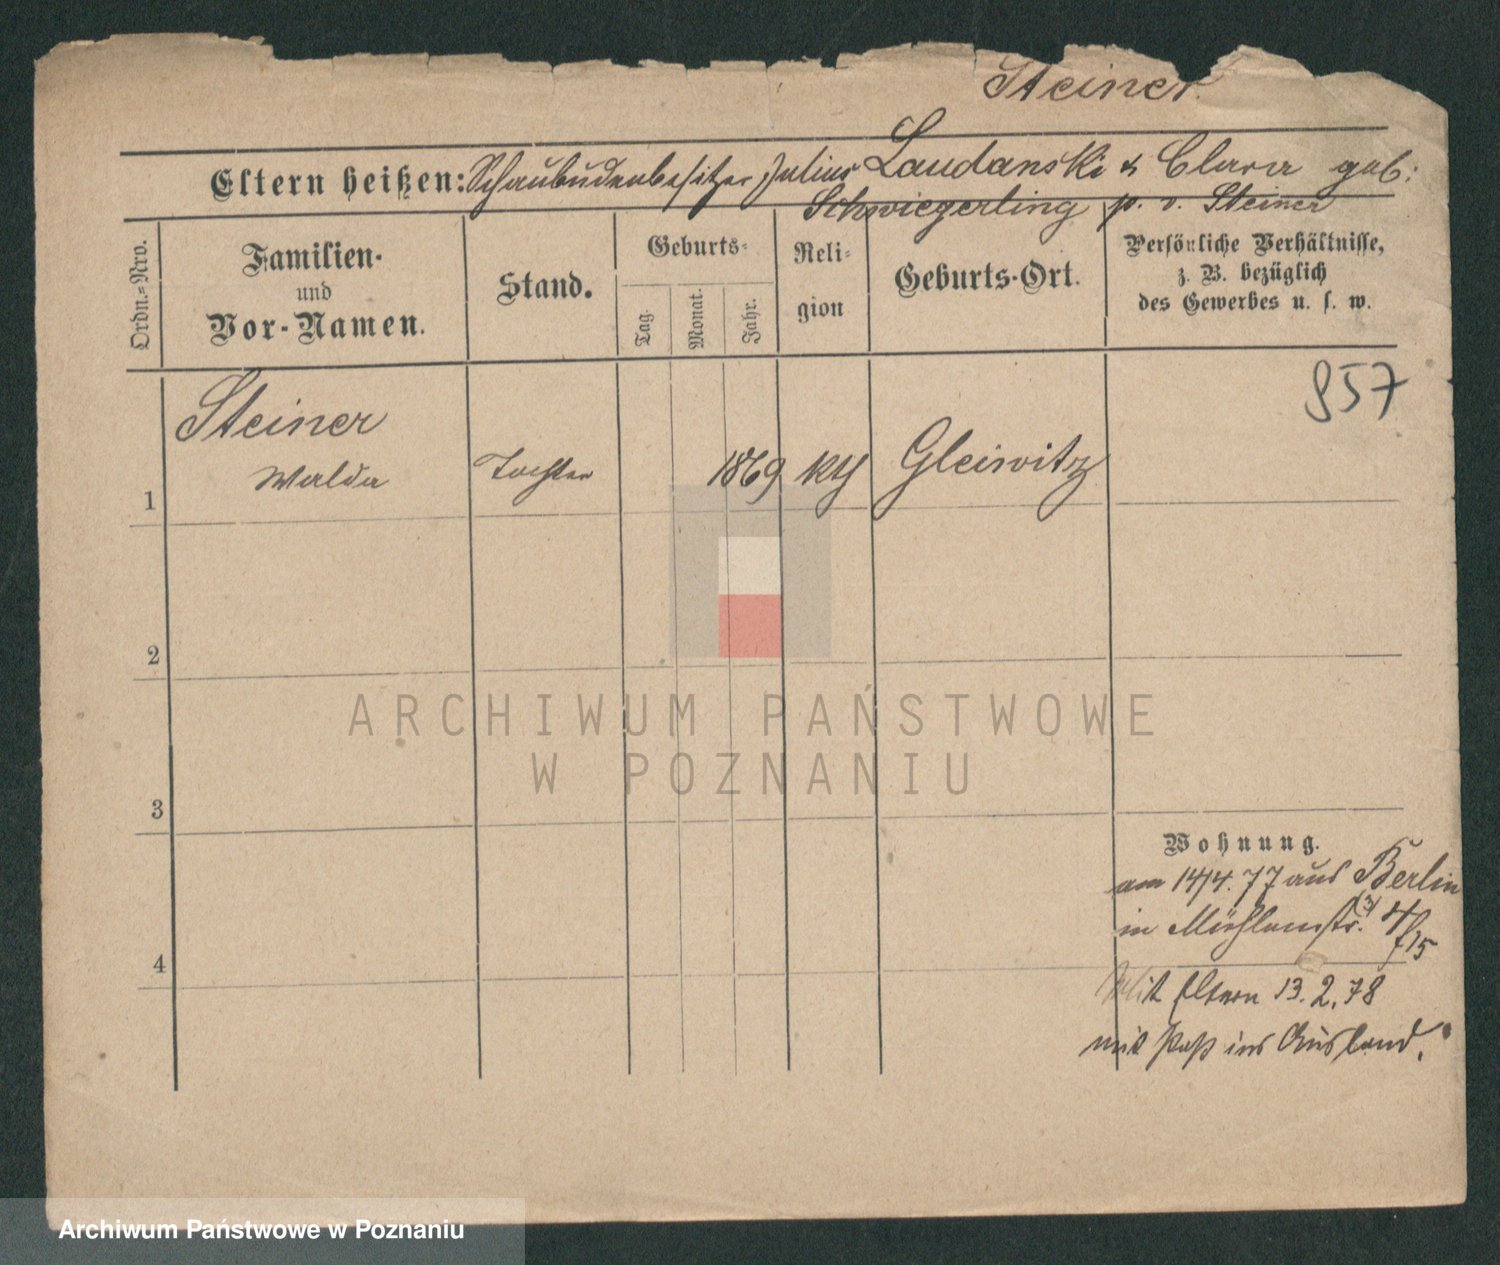 Steiner.
Eltern heißen: Schaubudenbesitzer Julius Laudanski & Clara geb:
Schwiegerling p. v. Steiner
Ordn.-Nro.
Familien-
und
Vor-Namen.
Stand.
Geburts-
Tag.
Monat.
Jahr.
Reli-
gion
Geburts-Ort.
Persönliche Verhältnisse,
z. B. bezüglich
des Gewerbes u. s. w.
857
1 Steiner
Walda Tochter 1869 kth Gleiwitz
2
3
4
Wohnung.
am 14/4. 77 aus Berlin
in Mühlenstr.
Mit Eltern 13. 2. 78
mit Paß ins Ausland.
ARCHIWUM PAŃSTWOWE
W POZNANIU
Archiwum Państwowe w Poznaniu